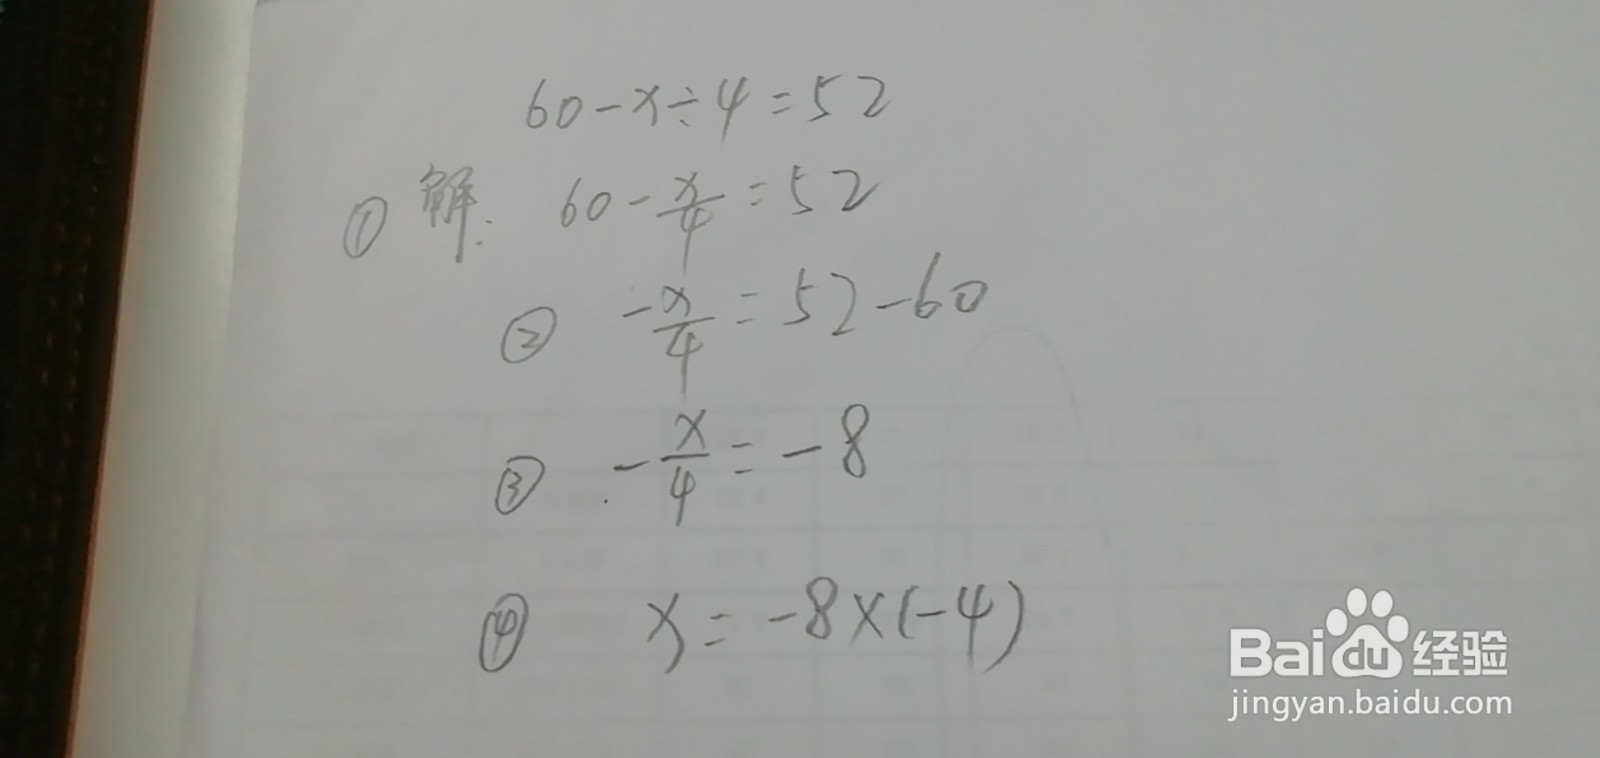 60-x÷4=52
① 解: 60-x/4=52
② -x/4=52-60
③ -x/4=-8
④ x=-8×(-4)
Baidu经验
jingyan.baidu.com